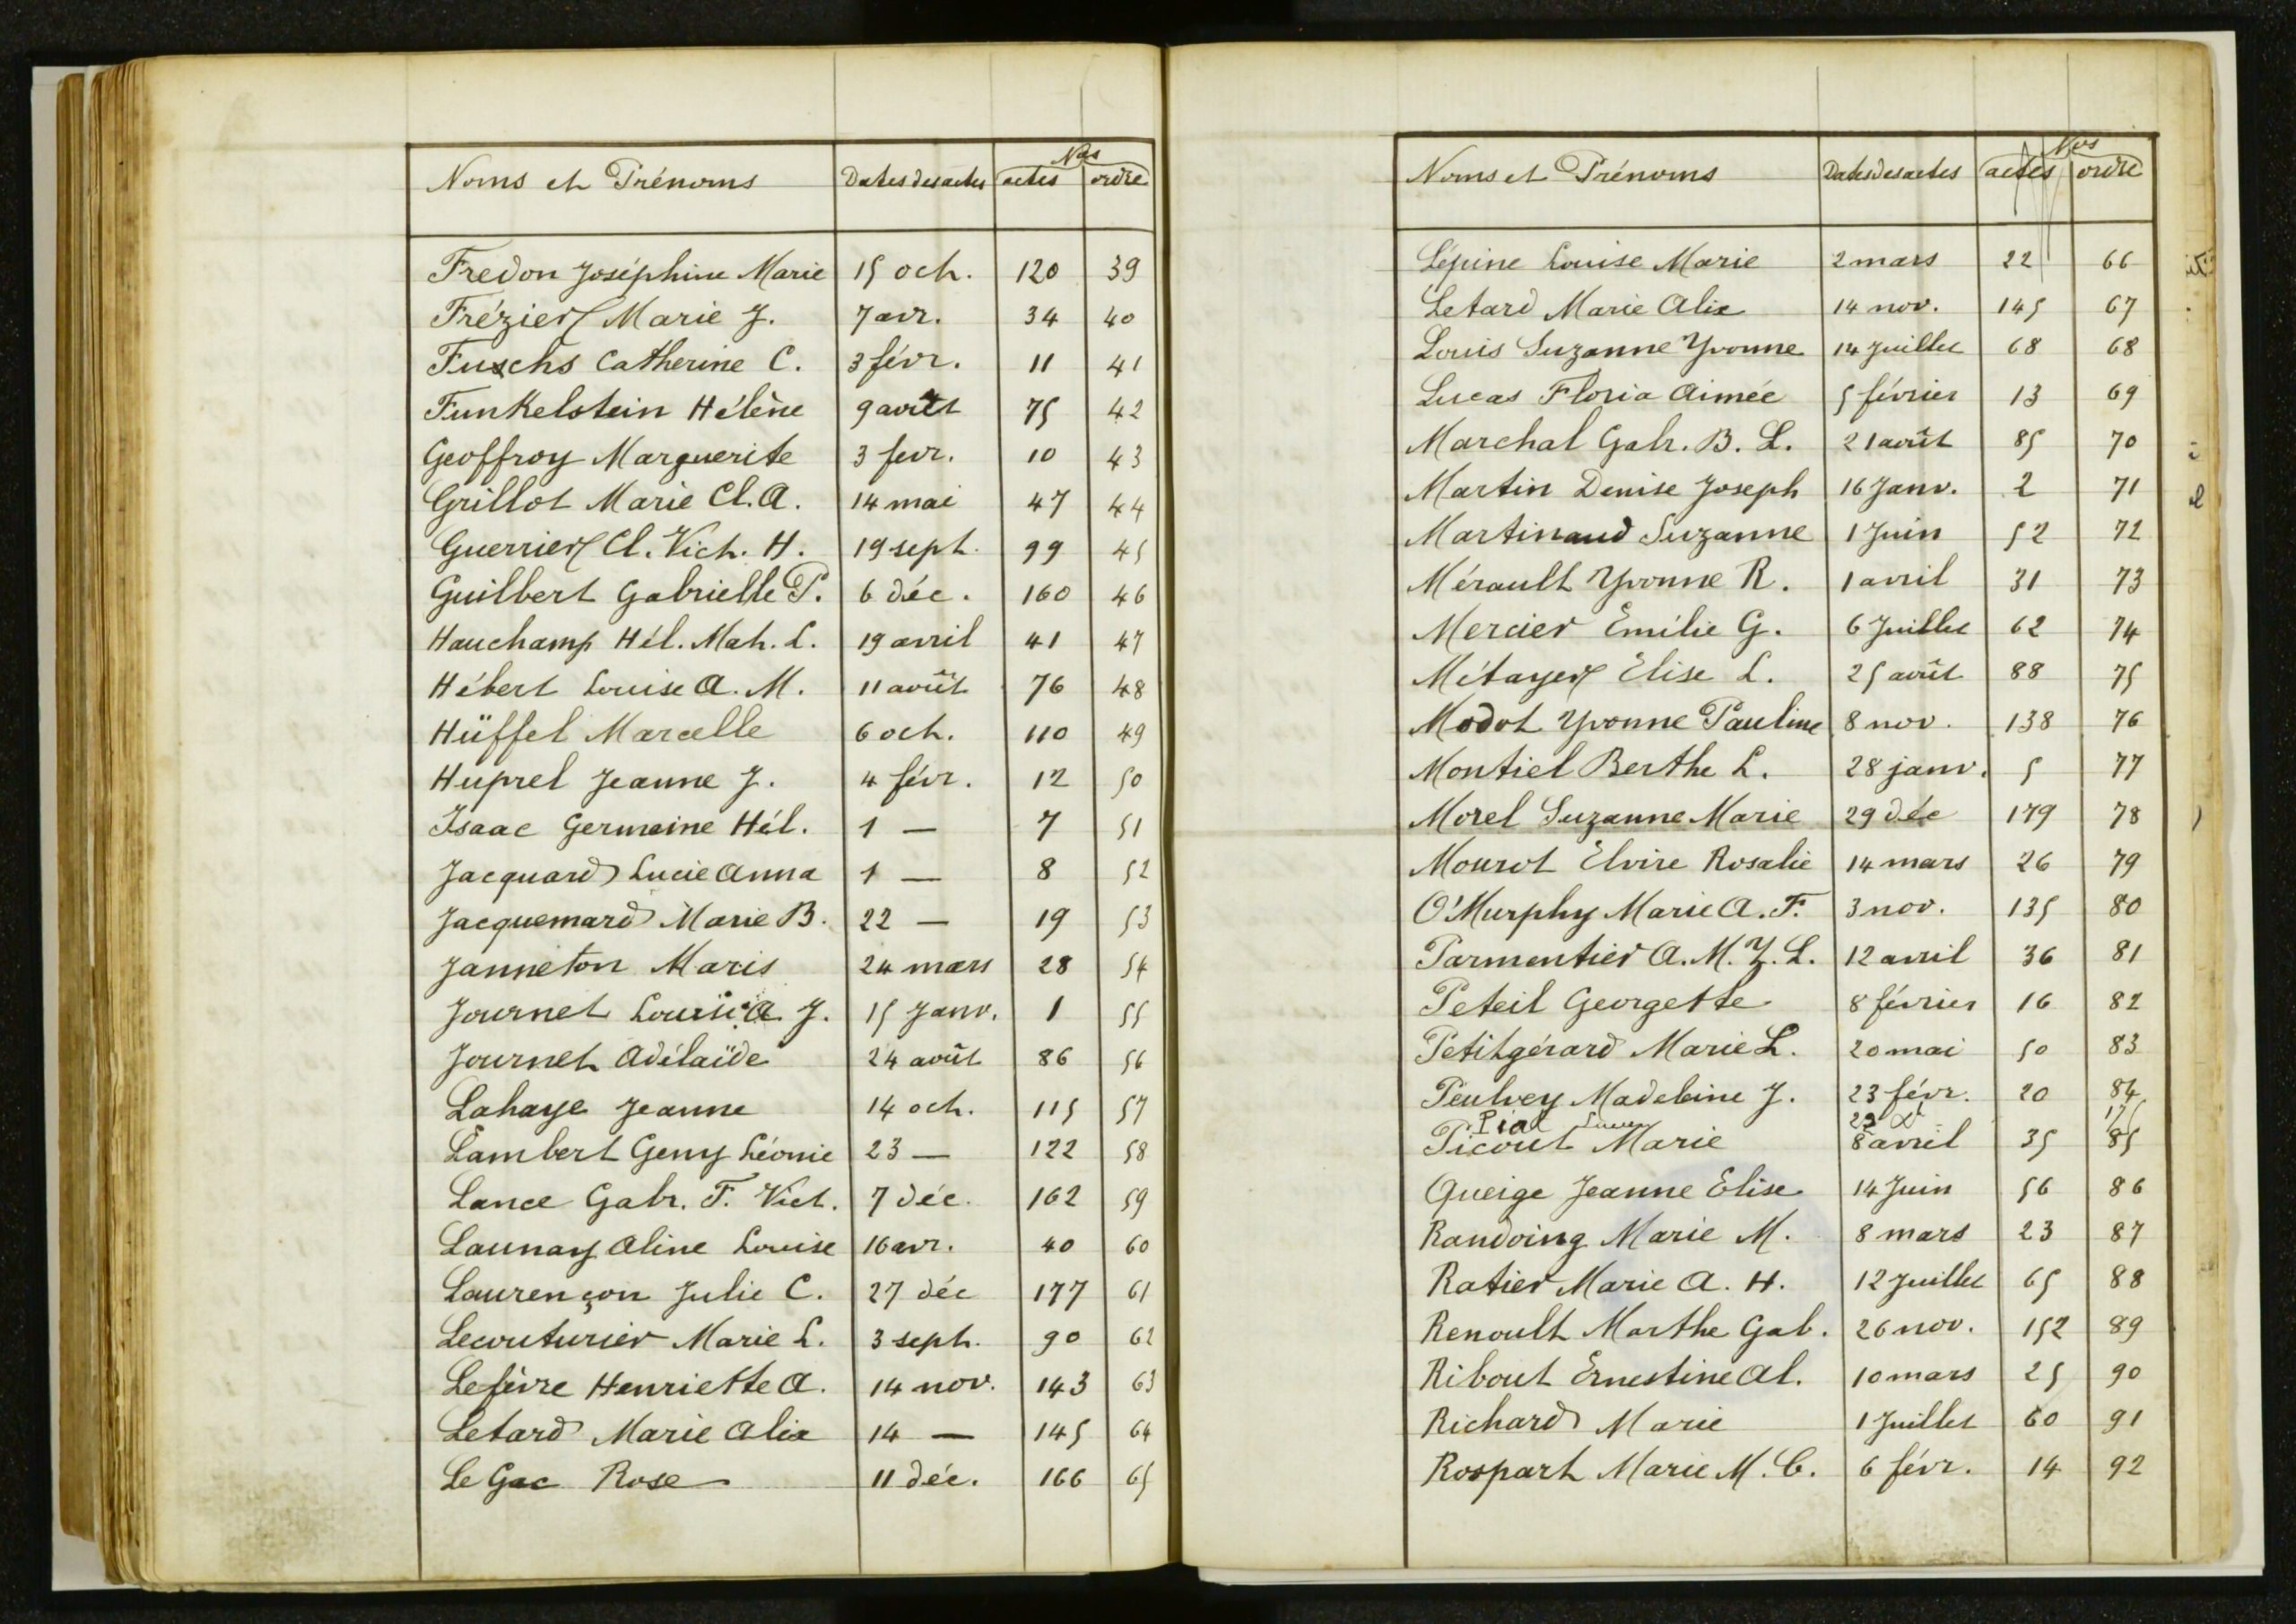 Noms et Prénoms Dates des actes Nos actes ordre
Fredon Joséphine Marie 15 oct. 120 39
Frézier Marie J. 7 avr. 34 40
Fuschs Catherine C. 3 févr. 11 41
Funkelstein Hélène 9 août 75 42
Geoffroy Marguerite 3 fevr. 10 43
Grillot Marie Cl. A. 14 mai 47 44
Guerrier Cl. Vict. H. 19 sept. 99 45
Guilbert Gabrielle P. 6 déc. 160 46
Hauchamp Hél. Mat. L. 19 avril 41 47
Hébert Louise A. M. 11 août 76 48
Hüffel Marcelle 6 oct. 110 49
Huprel Jeanne J. 4 févr. 12 50
Isaac Germaine Hél. 1 — 7 51
Jacquard Lucie Anna 1 — 8 52
Jacquemard Marie B. 22 — 19 53
Janneton Maris 24 mars 28 54
Journet J. 15 Janv. 1 55
Journet Adélaïde 24 août 86 56
Lahaye Jeanne 14 oct. 115 57
Lambert Geny Léonie 23 — 122 58
Lance Gabr. F. Vict. 7 déc. 162 59
Launay Aline Louise 16 avr. 40 60
Laurençon Julie C. 27 déc 177 61
Lecouturier Marie L. 3 sept. 90 62
Lefèvre Henriette A. 14 nov. 143 63
Letard Marie Alix 14 — 145 64
Le Gac Rose 11 déc. 166 65
Noms et Prénoms Dates des actes Nos actes ordre
Lépine Louise Marie 2 mars 22 66
Letard Marie Alix 14 nov. 145 67
Louis Suzanne Yvonne 14 Juillet 68 68
Lucas Floria Aimée 5 février 13 69
Marchal Gabr. B. L. 21 août 85 70
Martin Denise Joseph 16 Janv. 2 71
Martinaud Suzanne 1 Juin 52 72
Mérault Yvonne R. 1 avril 31 73
Mercier Emilie G. 6 Juillet 62 74
Métayer Elise L. 25 août 88 75
Modot Yvonne Pauline 8 nov. 138 76
Montiel Berthe L. 28 janv. 5 77
Morel Suzanne Marie 29 déc 179 78
Mourot Elvire Rosalie 14 mars 26 79
O'Murphy Marie A. F. 3 nov. 135 80
Parmentier A. M. Y. L. 12 avril 36 81
Peteil Georgette 8 février 16 82
Petitgérard Marie L. 20 mai 50 83
Peulvey Madeleine J. 23 févr. 20 84
Pial
Picout Marie 8 avril 35 85
Queige Jeanne Elise 14 Juin 56 86
Randoing Marie M. 8 mars 23 87
Ratier Marie A. H. 12 Juillet 65 88
Renoult Marthe Gab. 26 nov. 152 89
Ribout Ernestine Al. 10 mars 25 90
Richard Marie 1 Juillet 60 91
Rospart Marie M. C. 6 févr. 14 92